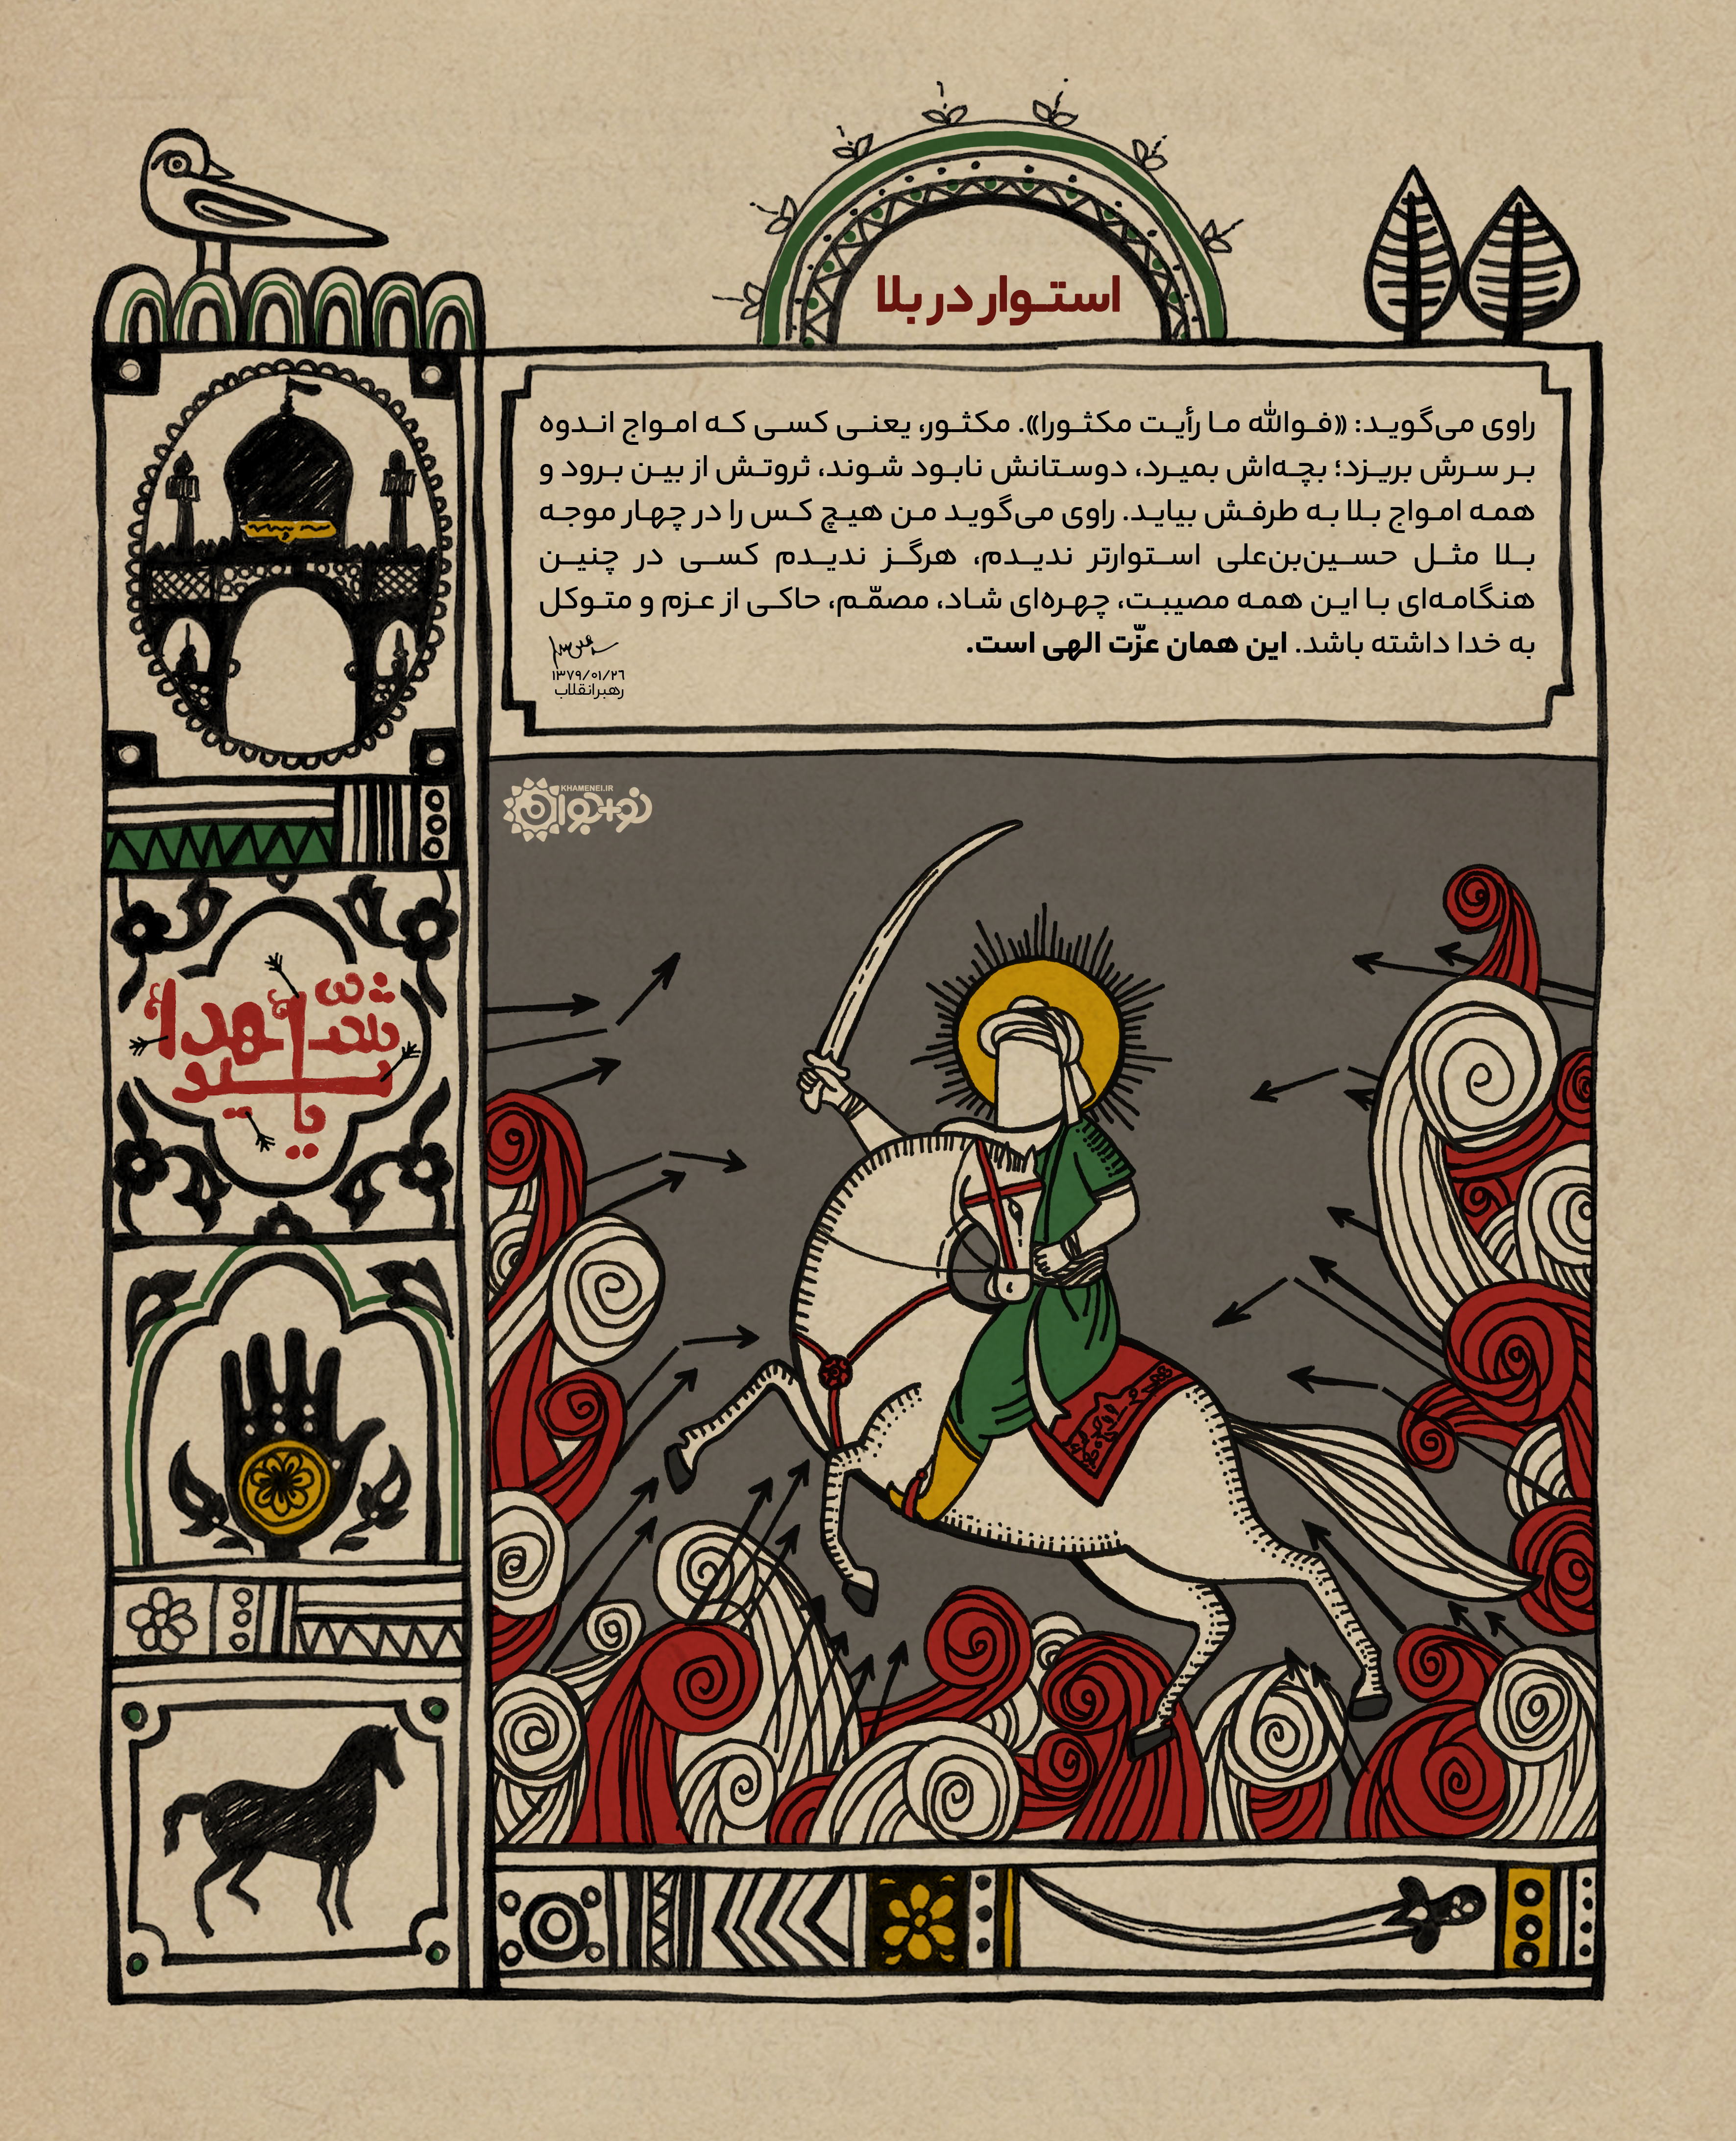 استوار در بلا
راوی می‌گوید: «فوالله ما رأیت مکثورا». مکثور، یعنی کسی که امواج اندوه
بر سرش بریزد؛ بچه‌اش بمیرد، دوستانش نابود شوند، ثروتش از بین برود و
همه امواج بلا به طرفش بیاید. راوی می‌گوید من هیچ کس را در چهار موجه
بلا مثل حسین‌بن‌علی استوارتر ندیدم، هرگز ندیدم کسی در چنین
هنگامه‌ای با این همه مصیبت، چهره‌ای شاد، مصمّم، حاکی از عزم و متوکل
به خدا داشته باشد. این همان عزّت الهی است.
۱۳۷۹/۰۱/۲۶
رهبر انقلاب
KHAMENEI.IR
نو+جوان
یا سید الشهدا